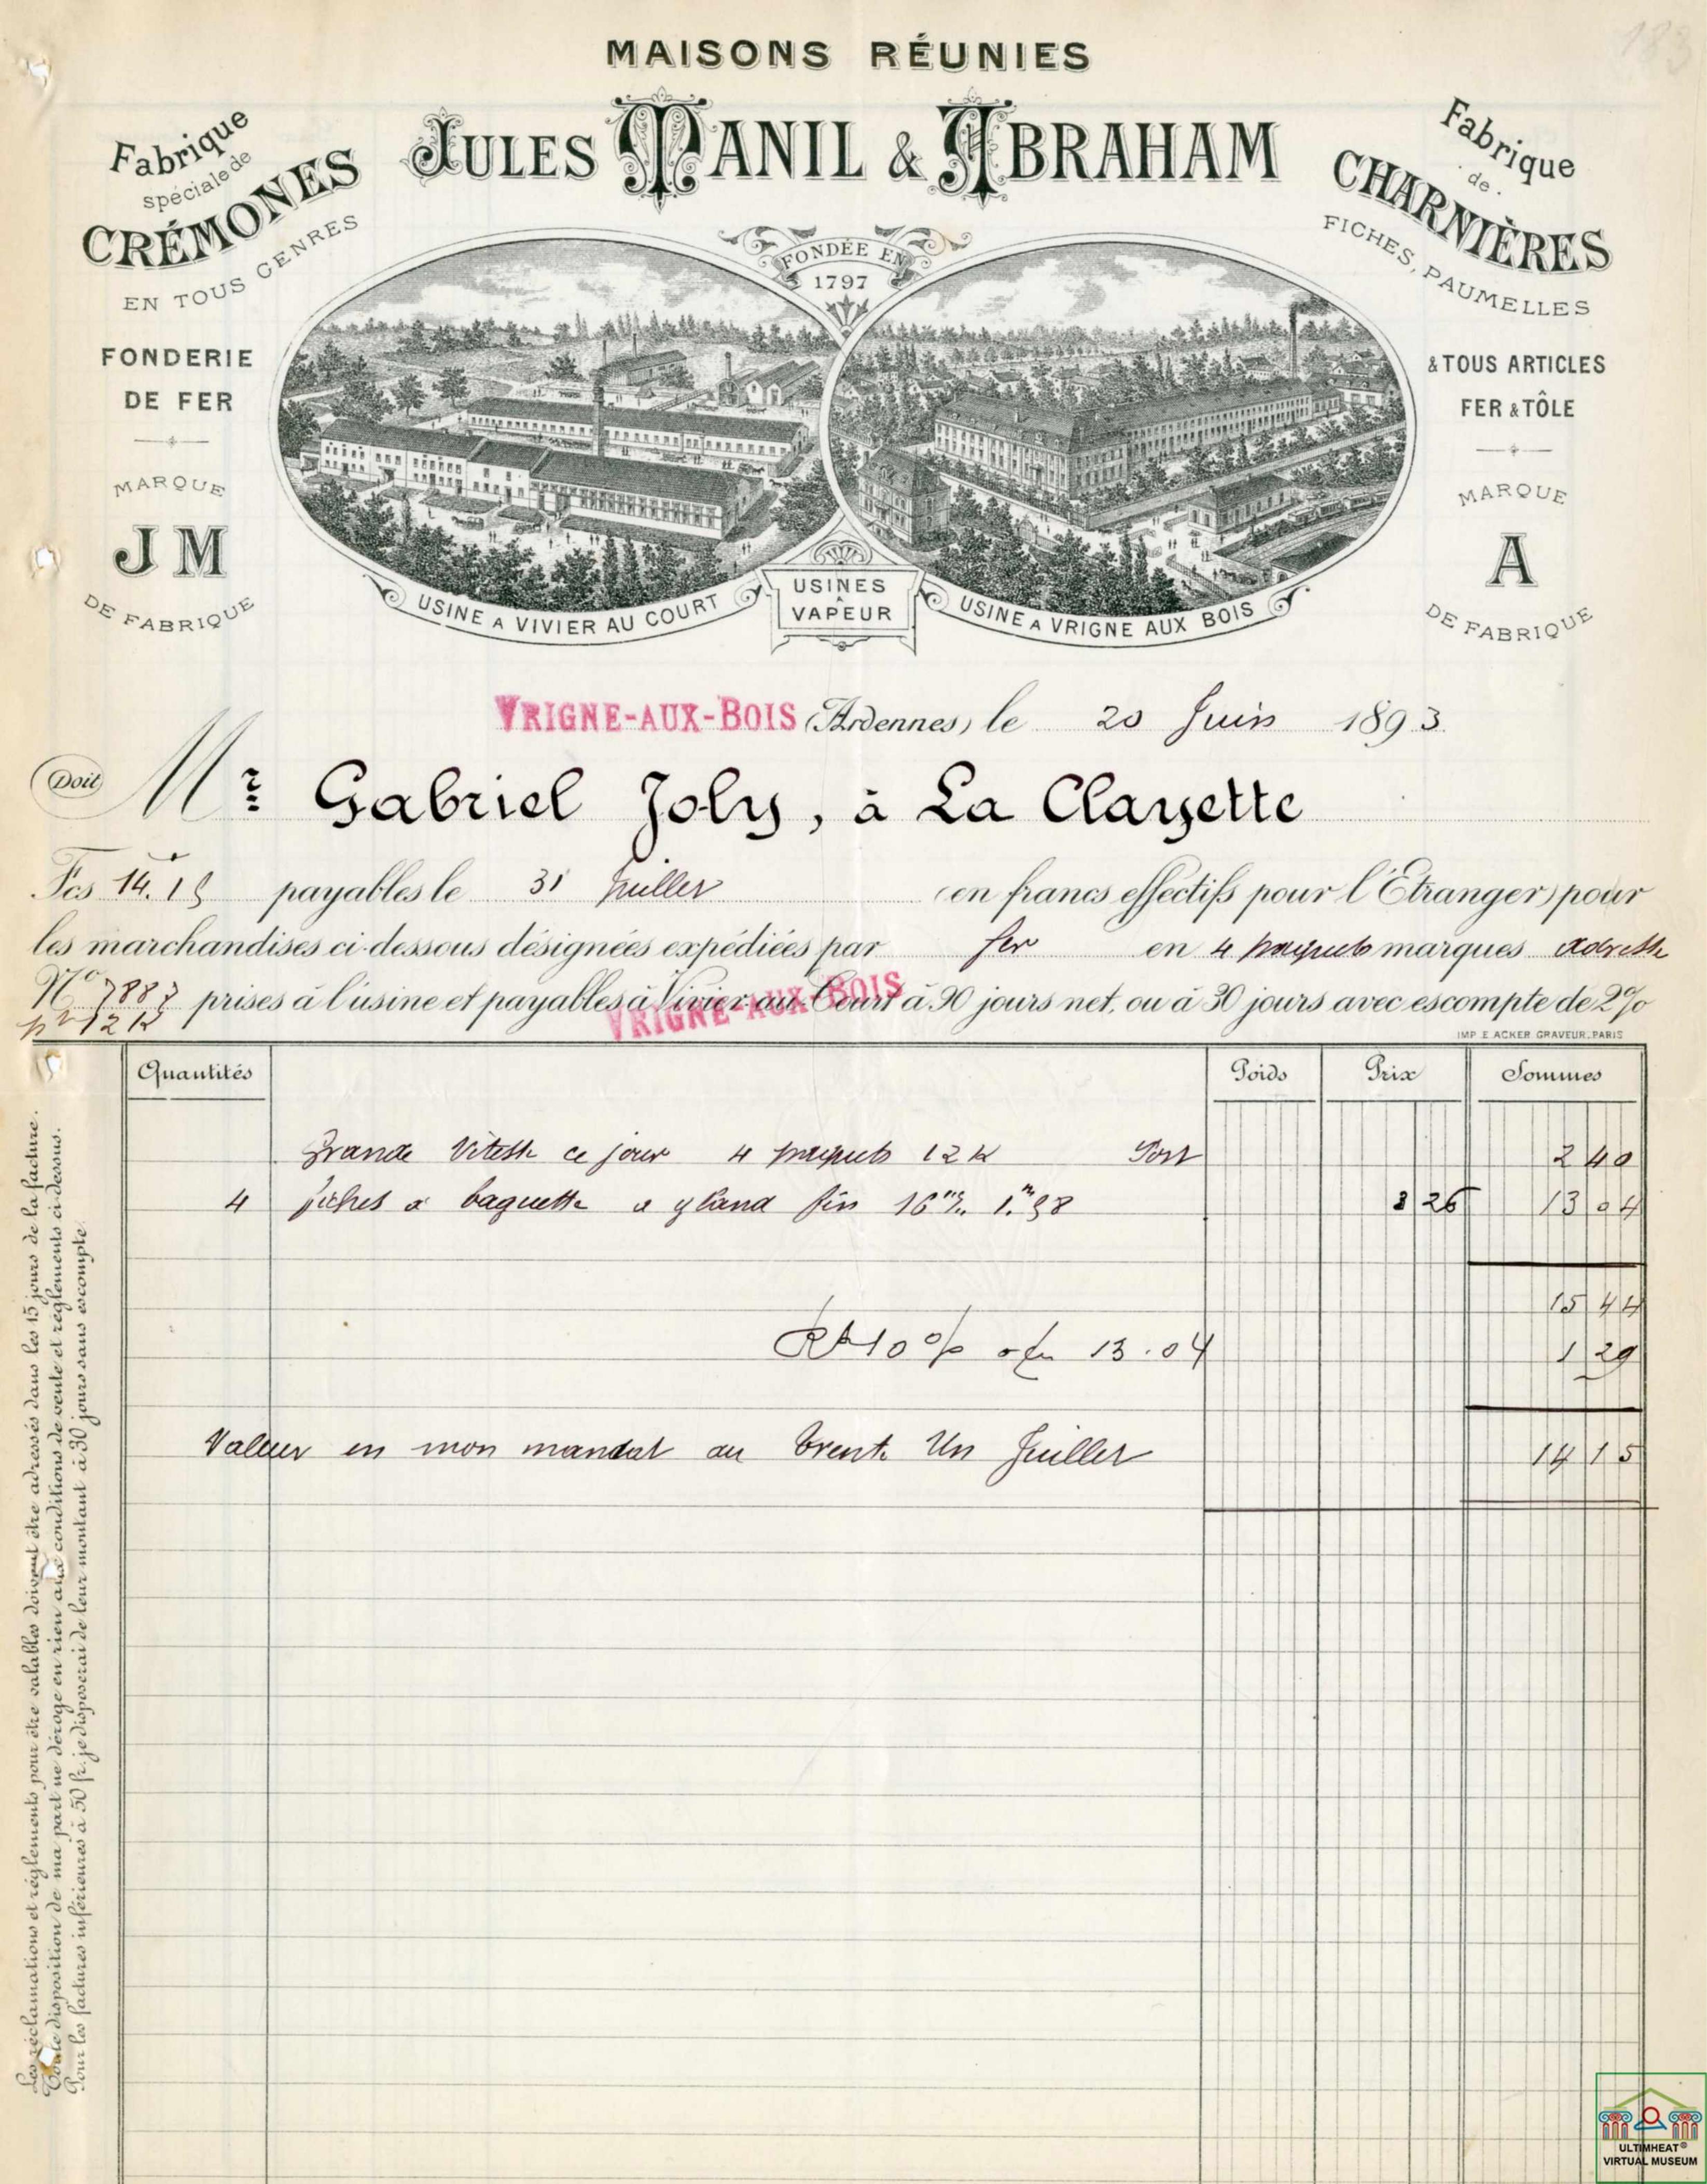 183
MAISONS RÉUNIES
JULES MANIL & ABRAHAM
Fabrique
spéciale de
CRÉMONES
EN TOUS GENRES
FONDERIE
DE FER
MARQUE
J M
DE FABRIQUE
Fabrique
de
CHARNIÈRES
FICHES, PAUMELLES
& TOUS ARTICLES
FER & TÔLE
MARQUE
A
DE FABRIQUE
FONDÉE EN
1797
USINE A VIVIER AU COURT
USINES
A
VAPEUR
USINE A VRIGNE AUX BOIS
VRIGNE-AUX-BOIS (Ardennes) le 20 Juin 1893
Doit Mr Gabriel Joly, à La Clayette
Fcs 14.15 payables le 31 Juillet (en francs effectifs pour l'Etranger) pour
les marchandises ci-dessous désignées expédiées par fer en 4 paquets marques adresse
No 7887 prises à l'usine et payables à Vivier-au-Court à 90 jours net, ou à 30 jours avec escompte de 2%
VRIGNE-AUX-BOIS
pr 12 K
IMP. E. ACKER GRAVEUR. PARIS
Quantités Poids Prix Sommes
Grande Vitesse ce jour 4 paquets 12 K Port 2 40
4 fiches a baguette a gland fin 16 3 26 13 04
15 44
10 % 13.04 1 29
Valeur en mon mandat au trente Un Juillet 14 15
Les réclamations et réglements pour être valables doivent être adressés dans les 15 jours de la facture.
Toute disposition de ma part ne déroge en rien aux conditions de vente et réglements ci-dessus.
Pour les factures inférieures à 50 fr. je disposerai de leur montant à 30 jours sans escompte.
ULTIMHEAT®
VIRTUAL MUSEUM